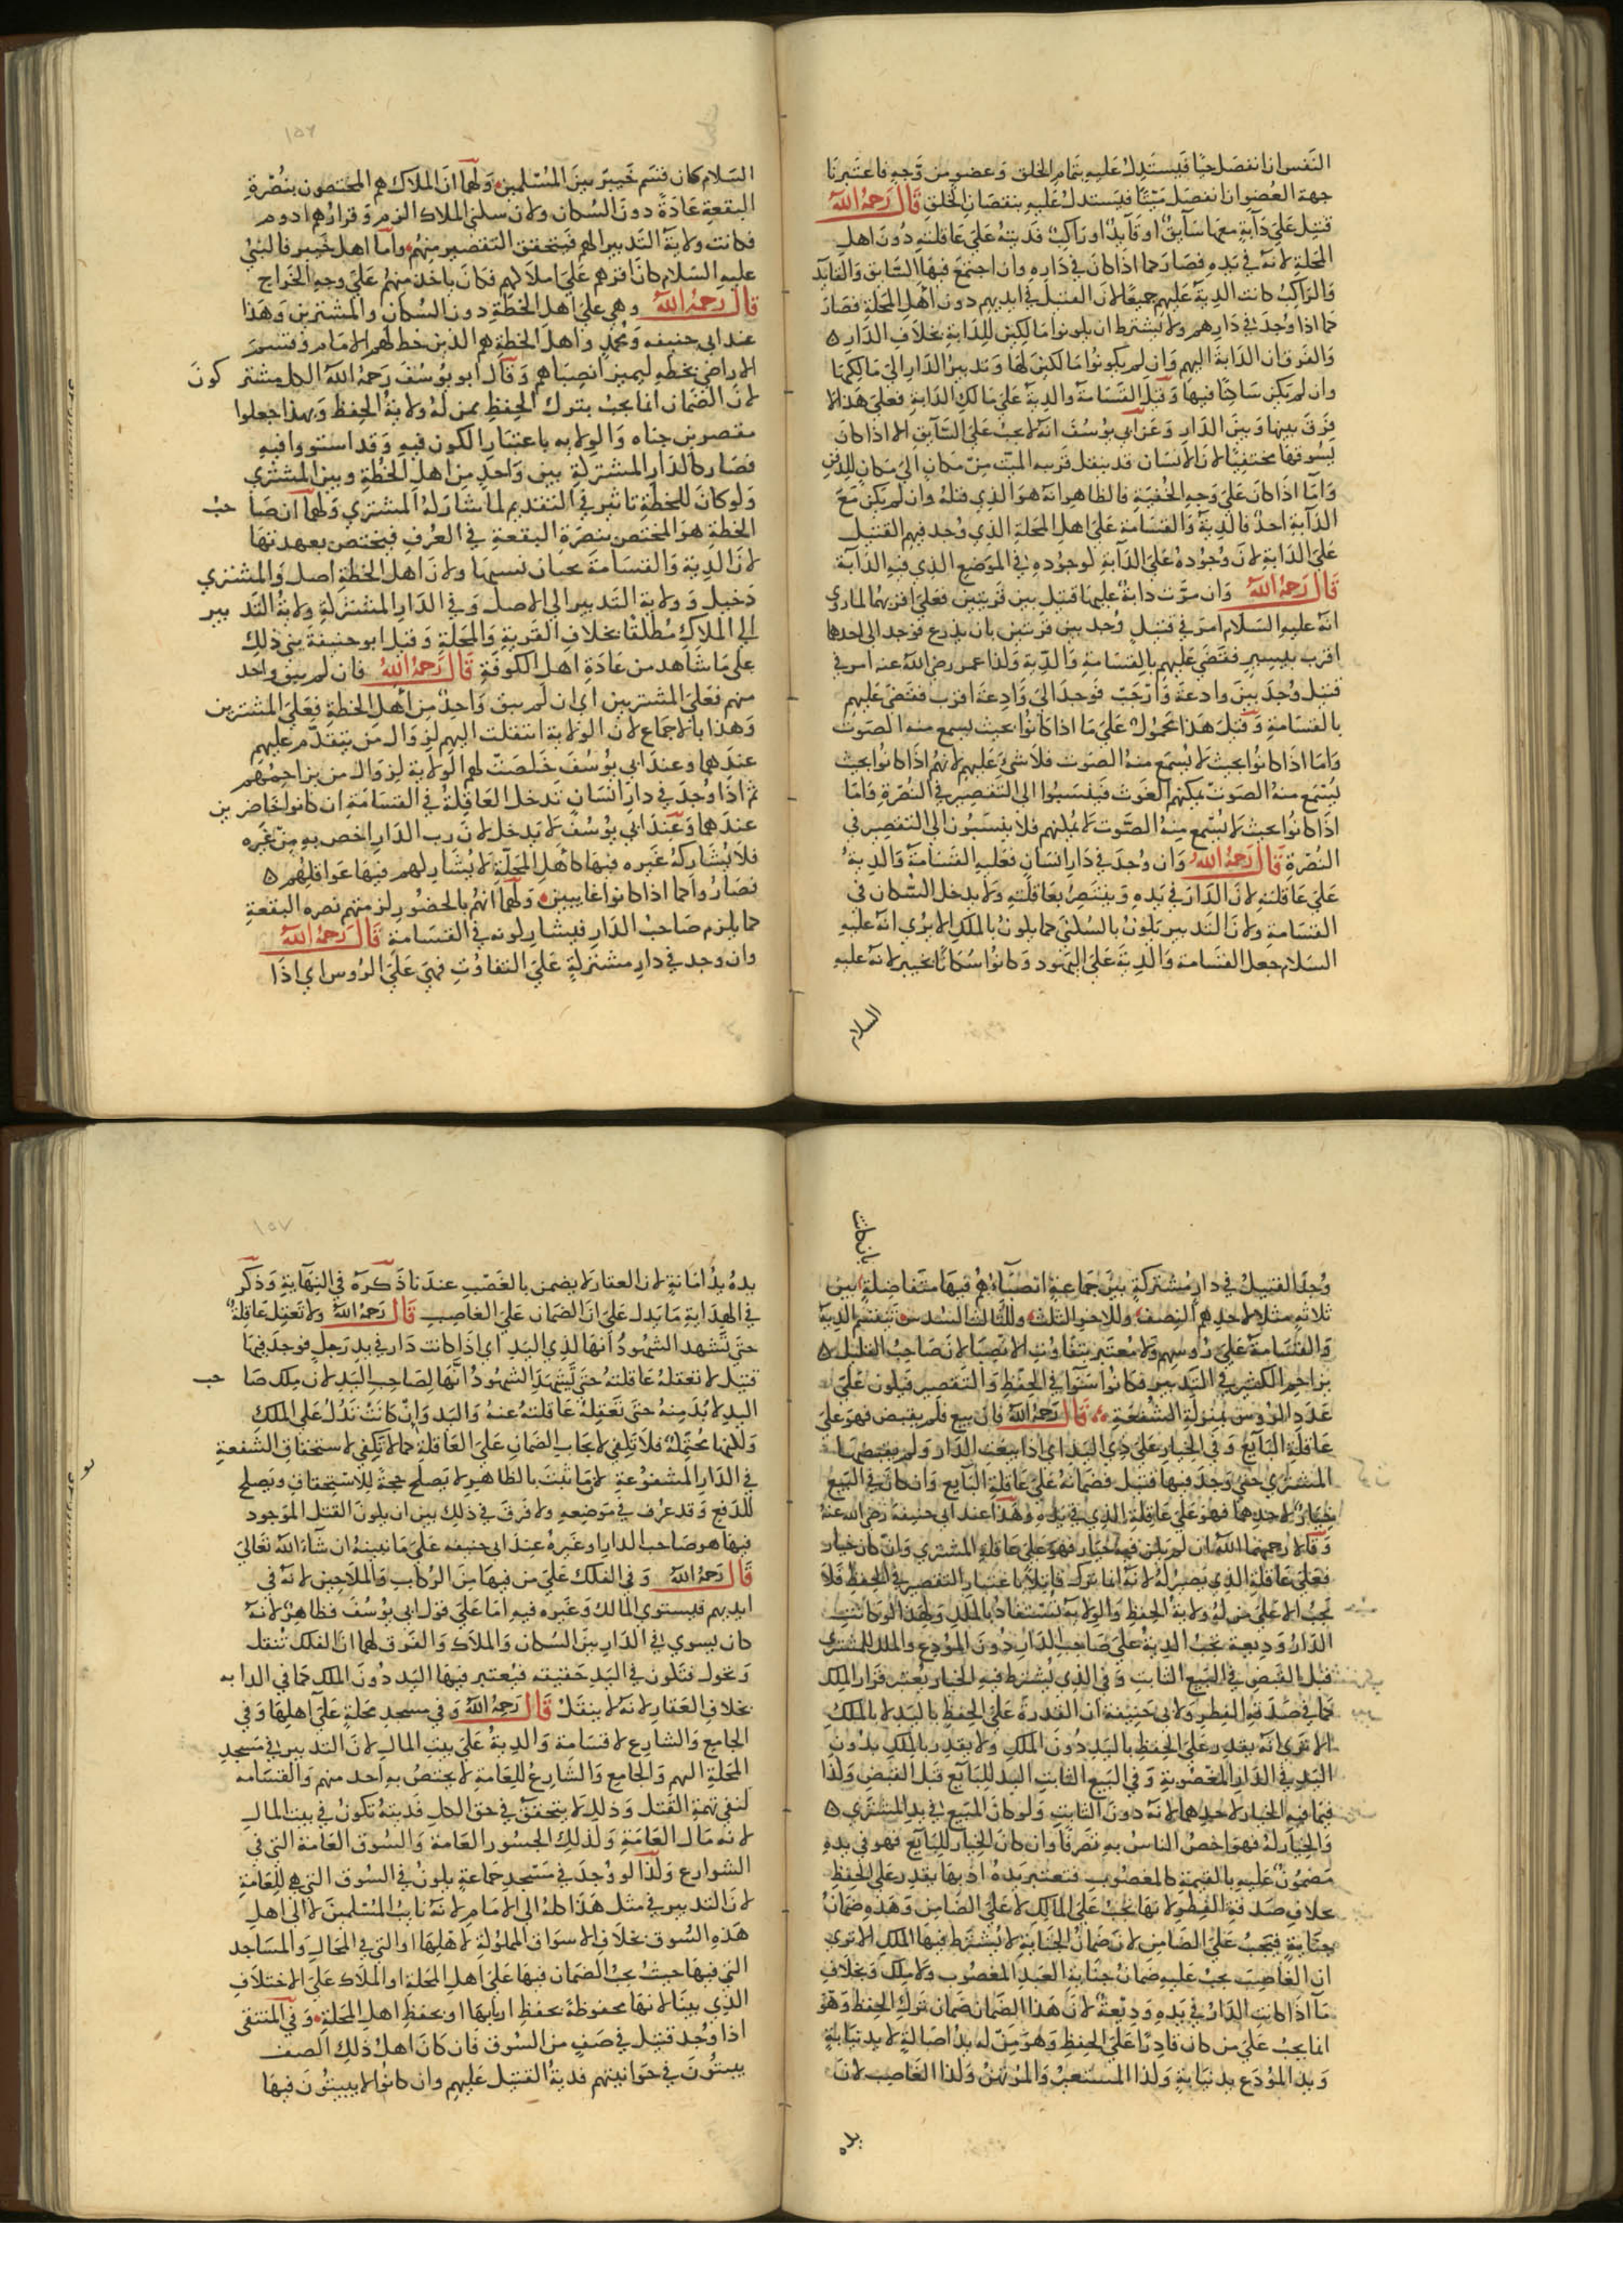 النفس ان انفصل حيا فيستدل عليه بتمام الخلق وعضو من وجه فاعتبرنا
جهة العضو ان انفصل ميتا فيستدل عليه بنقصان الخلق قال رحمه الله
قتيل على دابة معها سايق او قايد او راكب فديته على عاقلته دون اهل
المحلة لانه في يده فصار كما اذا كان في داره وان اجتمع فيها السايق والقايد
والراكب كانت الدية عليهم جميعا لان القتيل في ايديهم دون اهل المحلة فصار
كما اذا وجد في دارهم ولا يشترط ان يكونوا مالكين للدابة بخلاف الدار ه
والفرق ان الدابة اليهم وان لم يكونوا مالكين لها وتدبير الدار الى مالكها
وان لم يكن ساكنا فيها وقيل القسامة والدية على مالك الدابة فعلى هذا لا
فرق بينها وبين الدار وعن ابي يوسف انه لا يجب على السايق الا اذا كان
يسوقها مختفيا لان الانسان قد ينقل قريبه الميت من مكان الى مكان للدفن
واما اذا كان على وجه الخفية فالظاهر انه هو الذي قتله وان لم يكن مع
الدابة احد فالدية والقسامة على اهل المحلة الذي وجد فيهم القتيل
على الدابة لان وجوده على الدابة لوجوده في الموضع الذي فيه الدابة
قال رحمه الله وان مرت دابة عليها قتيل بين قريتين فعلى اقربهما لما روي
انه عليه السلام امر في قتيل وجد بين قريتين بان يذرع فوجد الى احدهما
اقرب بشبر فقضى عليهم بالقسامة والدية ولذا عمر رضي الله عنه امر في
قتيل وجد بين وادعة وارحب فوجد الى وادعة اقرب فقضى عليهم
بالقسامة وقيل هذا محمول على ما اذا كانوا بحيث يسمع منه الصوت
واما اذا كانوا بحيث لا يسمع منه الصوت فلا شي عليهم لانهم اذا كانوا بحيث
يسمع منه الصوت يمكنهم الغوث فينسبوا الى التقصير في النصرة فاما
اذا كانوا بحيث لا يسمع منه الصوت لا يمكنهم فلا ينسبون الى التقصير في
النصرة قال رحمه الله وان وجد في دار انسان فعليه القسامة والدية
على عاقلته لان الدار في يده وينتصر بعاقلته ولا يدخل السكان في
القسامة ولان التدبير يكون بالسكنى كما يكون بالملك الا يري انه عليه
السلام جعل القسامة والدية على اليهود وكانوا سكانا بخيبر لانه عليه
السلام
١٥٦
السلام كان قسم خيبر بين المسلمين ولهما ان الملاك هم المختصون بنصرة
البقعة عادة دون السكان ولان سكنى الملاك الزم وقرارهم ادوم
فكانت ولاية التدبير اليهم فيتحقق التقصير منهم واما اهل خيبر فالنبي
عليه السلام كان اقرهم على املاكهم فكان ياخذ منهم على وجه الخراج
قال رحمه الله وهي على اهل الخطة دون السكان والمشترين وهذا
عند ابي حنيفه ومحمد واهل الخطة هم الذين خط لهم الامام وقسم
الاراضي بخطه ليميز انصباهم وقال ابو يوسف رحمه الله الكل مشتر كون
لان الضمان انما يجب بترك الحفظ ممن له ولاية الحفظ وبهذا جعلوا
مقصرين جناه والولايه باعتبار الكون فيه وقد استووا فيه
فصار كالدار المشتركة بين واحد من اهل الخطة وبين المشتري
ولو كان للخطة تاثير في التقديم لما شاركه المشتري ولهما ان صا حب
الخطة هو المختص بنصرة البقعة في العرف فيختص بعهدتها
لان الدية والقسامة يجبان بسببها ولان اهل الخطة اصل والمشتري
دخيل وولاية التدبير الى الاصل وفي الدار المشتركة ولاية التد بير
الي الملاك مطلقا بخلاف القرية والمحلة وقيل ابو حنيفة بنى ذلك
على ما شاهد من عادة اهل الكوفة قال رحمه الله فان لم يبق واحد
منهم فعلى المشترين اي ان لم يبق واحد من اهل الخطة فعلى المشترين
وهذا بالاجماع لان الولاية انتقلت اليهم لزوال من يتقدم عليهم
عندهما وعند ابي يوسف خلصت لهم الولاية لزوال من يزاحمهم
ثم اذا وجد في دار انسان تدخل العاقلة في القسامة ان كانوا حاضرين
عندهما وعند ابي يوسف لا يدخل لان رب الدار اخص به من غيره
فلا يشاركه غيره فيها كاهل المحلة لا يشاركهم فيها عواقلهم ه
فصاروا كما اذا كانوا غايبين ولهما انهم بالحضور لزمتهم نصره البقعة
كما يلزم صاحب الدار فيشاركونه في القسامة قال رحمه الله
وان وجد في دار مشتركة على التفاوت فهي على الروس اي اذا
وجد القتيل في دار مشتركة بين جماعة انصباؤهم فيها متفاضلة بين
ثلاثه مثلا لاحدهم النصف وللاخر الثلث وللثالث السدس تنقسم الدية
والقسامة على روسهم ولا معتبر بتفاوت الانصبا لان صاحب القليل ه
يزاحم الكثير في التدبير فكانوا سوا في الحفظ والتقصير فيكون على
عدد الروس بمنزلة الشفعة قال رحمه الله فان بيع فلم يقبض فهو على
عاقلة البايع وفي الخيار على ذي اليد اي اذا بيعت الدار ولم يقبضها
المشتري حتى وجد فيها قتيل فضمانه على عاقلة البايع وان كان في البيع
خيار لاحدهما فهو على عاقلة الذي في يده وهذا عند ابي حنيفة رضي الله عنه
وقالا رحمهما الله ان لم يكن فيه خيار فهو على عاقلة المشتري وان كان خيار
فعلى عاقلة الذي يصير له لانه انما نزل قاتلا باعتبار التقصير في الحفظ فلا
تجب الا على من له ولاية الحفظ والولاية تستفاد بالملك ولهذا لو كانت
الدار وديعة تجب الدية على صاحب الدار دون المودع والملك للمشتري
قبل القبض في البيع الثابت وفي الذي يشرط فيه الخيار يعتبر قرار الملك
كما في صدقة الفطر ولابي حنيفة ان القدرة على الحفظ باليد لا بالملك
الا ترى انه يقدر على الحفظ باليد دون الملك ولا يقدر بالملك بدون
اليد في الدار المغصوبة وفي البيع الثابت اليد للبايع قبل القبض ولذا
فيما فيه الخيار لاحدهما لانه دون الثابت ولو كان المبيع في يد المشتري ه
والخيار له فهو اخص الناس به تصرفا وان كان الخيار للبايع فهو في يده
مضمون عليه بالقيمة كالمغصوب فتعتبر يده اذ بها يقدر على الحفظ
بخلاف صدقة الفطر لانها تجب على المالك لا على الضامن وهذه ضمان
جناية فتجب على الضامن لان ضمان الجناية لا يشترط فيها الملك الا تري
ان الغاصب يجب عليه ضمان جناية العبد المغصوب ولا ملك وبخلاف
ما اذا كانت الدار في يده وديعة لان هذا الضمان ضمان ترك الحفظ وهو
انما يجب على من كان قادرا على الحفظ وهو من له يد اصالة لا يد نيابة
ويد المودع يد نيابة ولذا المستعير والمرتهن ولذا الغاصب لان
يده
١٥٧
يده يد امانة لان العقار لا يضمن بالغصب عندنا ذكره في النهاية وذكر
في الهداية ما يدل على ان الضمان على الغاصب قال رحمه الله ولا تعقل عاقلة
حتى تشهد الشهود انها لذي اليد اي اذا كانت دار في يد رجل فوجد فيها
قتيل لا تعقله عاقلته حتى يشهد الشهود انها لصاحب اليد لان ملك صا حب
اليد لا بد منه حتى تعقله عاقلته عنه واليد وان كانت تدل على الملك
ولكنها محتملة فلا تكفي لايجاب الضمان على العاقلة كما لا تكفي لاستحقاق الشفعة
في الدار المشفوعة لان ما ثبت بالظاهر لا يصلح حجة للاستحقاق ويصلح
للدفع وقد عرف في موضعه ولا فرق في ذلك بين ان يكون القتيل الموجود
فيها هو صاحب الدار او غيره عند ابي حنيفه على ما نبينه ان شاء الله تعالى
قال رحمه الله وفي الفلك على من فيها من الركاب والملاحين لانه في
ايديهم فيستوي المالك وغيره فيه اما على قول ابي يوسف فظاهر لانه
كان يسوي في الدار بين السكان والملاك والفرق لهما ان الفلك تنقل
وتحول فتكون في اليد حقيقه فيعتبر فيها اليد دون الملك كما في الدابه
بخلاف العقار لانه لا ينقل قال رحمه الله وفي مسجد محلة على اهلها وفي
الجامع والشارع لا قسامة والدية على بيت المال لان التدبير في مسجد
المحلة اليهم والجامع والشارع للعامة لا يختص به احد منهم والقسامه
لنفي تهمة القتل وذلك لا يتحقق في حق الكل فديته تكون في بيت المال
لانه مال العامة ولذلك الجسور العامة والسوق العامة التي في
الشوارع ولذا لو وجد في مسجد جماعة يكون في السوق التي هي للعامة
لان التدبير في مثل هذا كله الى الامام لانه نايب المسلمين لا الى اهل
هذه السوق بخلاف الاسواق المملوكة لاهلها او التي في المحال والمساجد
التي فيها حيث يجب الضمان فيها على اهل المحلة او الملاك على الاختلاف
الذي بينا لانها محفوظة بحفظ اربابها او بحفظ اهل المحلة وفي المنتقى
اذا وجد قتيل في صف من السوق فان كان اهل ذلك الصف
يبيتون في حوانيتهم فدية القتيل عليهم وان كانوا لا يبيتون فيها